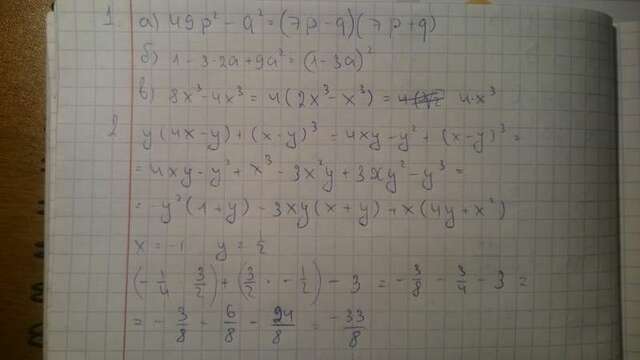 1. а) 49p² - q² = (7p - q)(7p + q)
б) 1 - 3·2a + 9a² = (1 - 3a)²
в) 8x³ - 4x³ = 4(2x³ - x³) = 4·x³
2 y(4x - y) + (x - y)³ = 4xy - y² + (x - y)³ =
= 4xy - y² + x³ - 3x²y + 3xy² - y³ =
= -y²(1 + y) - 3xy(x + y) + x(4y + x²)
x = -1 y = 1/2
(-1/4 · 3/2) + (3/2 · -1/2) - 3 = -3/8 - 3/4 - 3 =
= -3/8 - 6/8 - 24/8 = -33/8